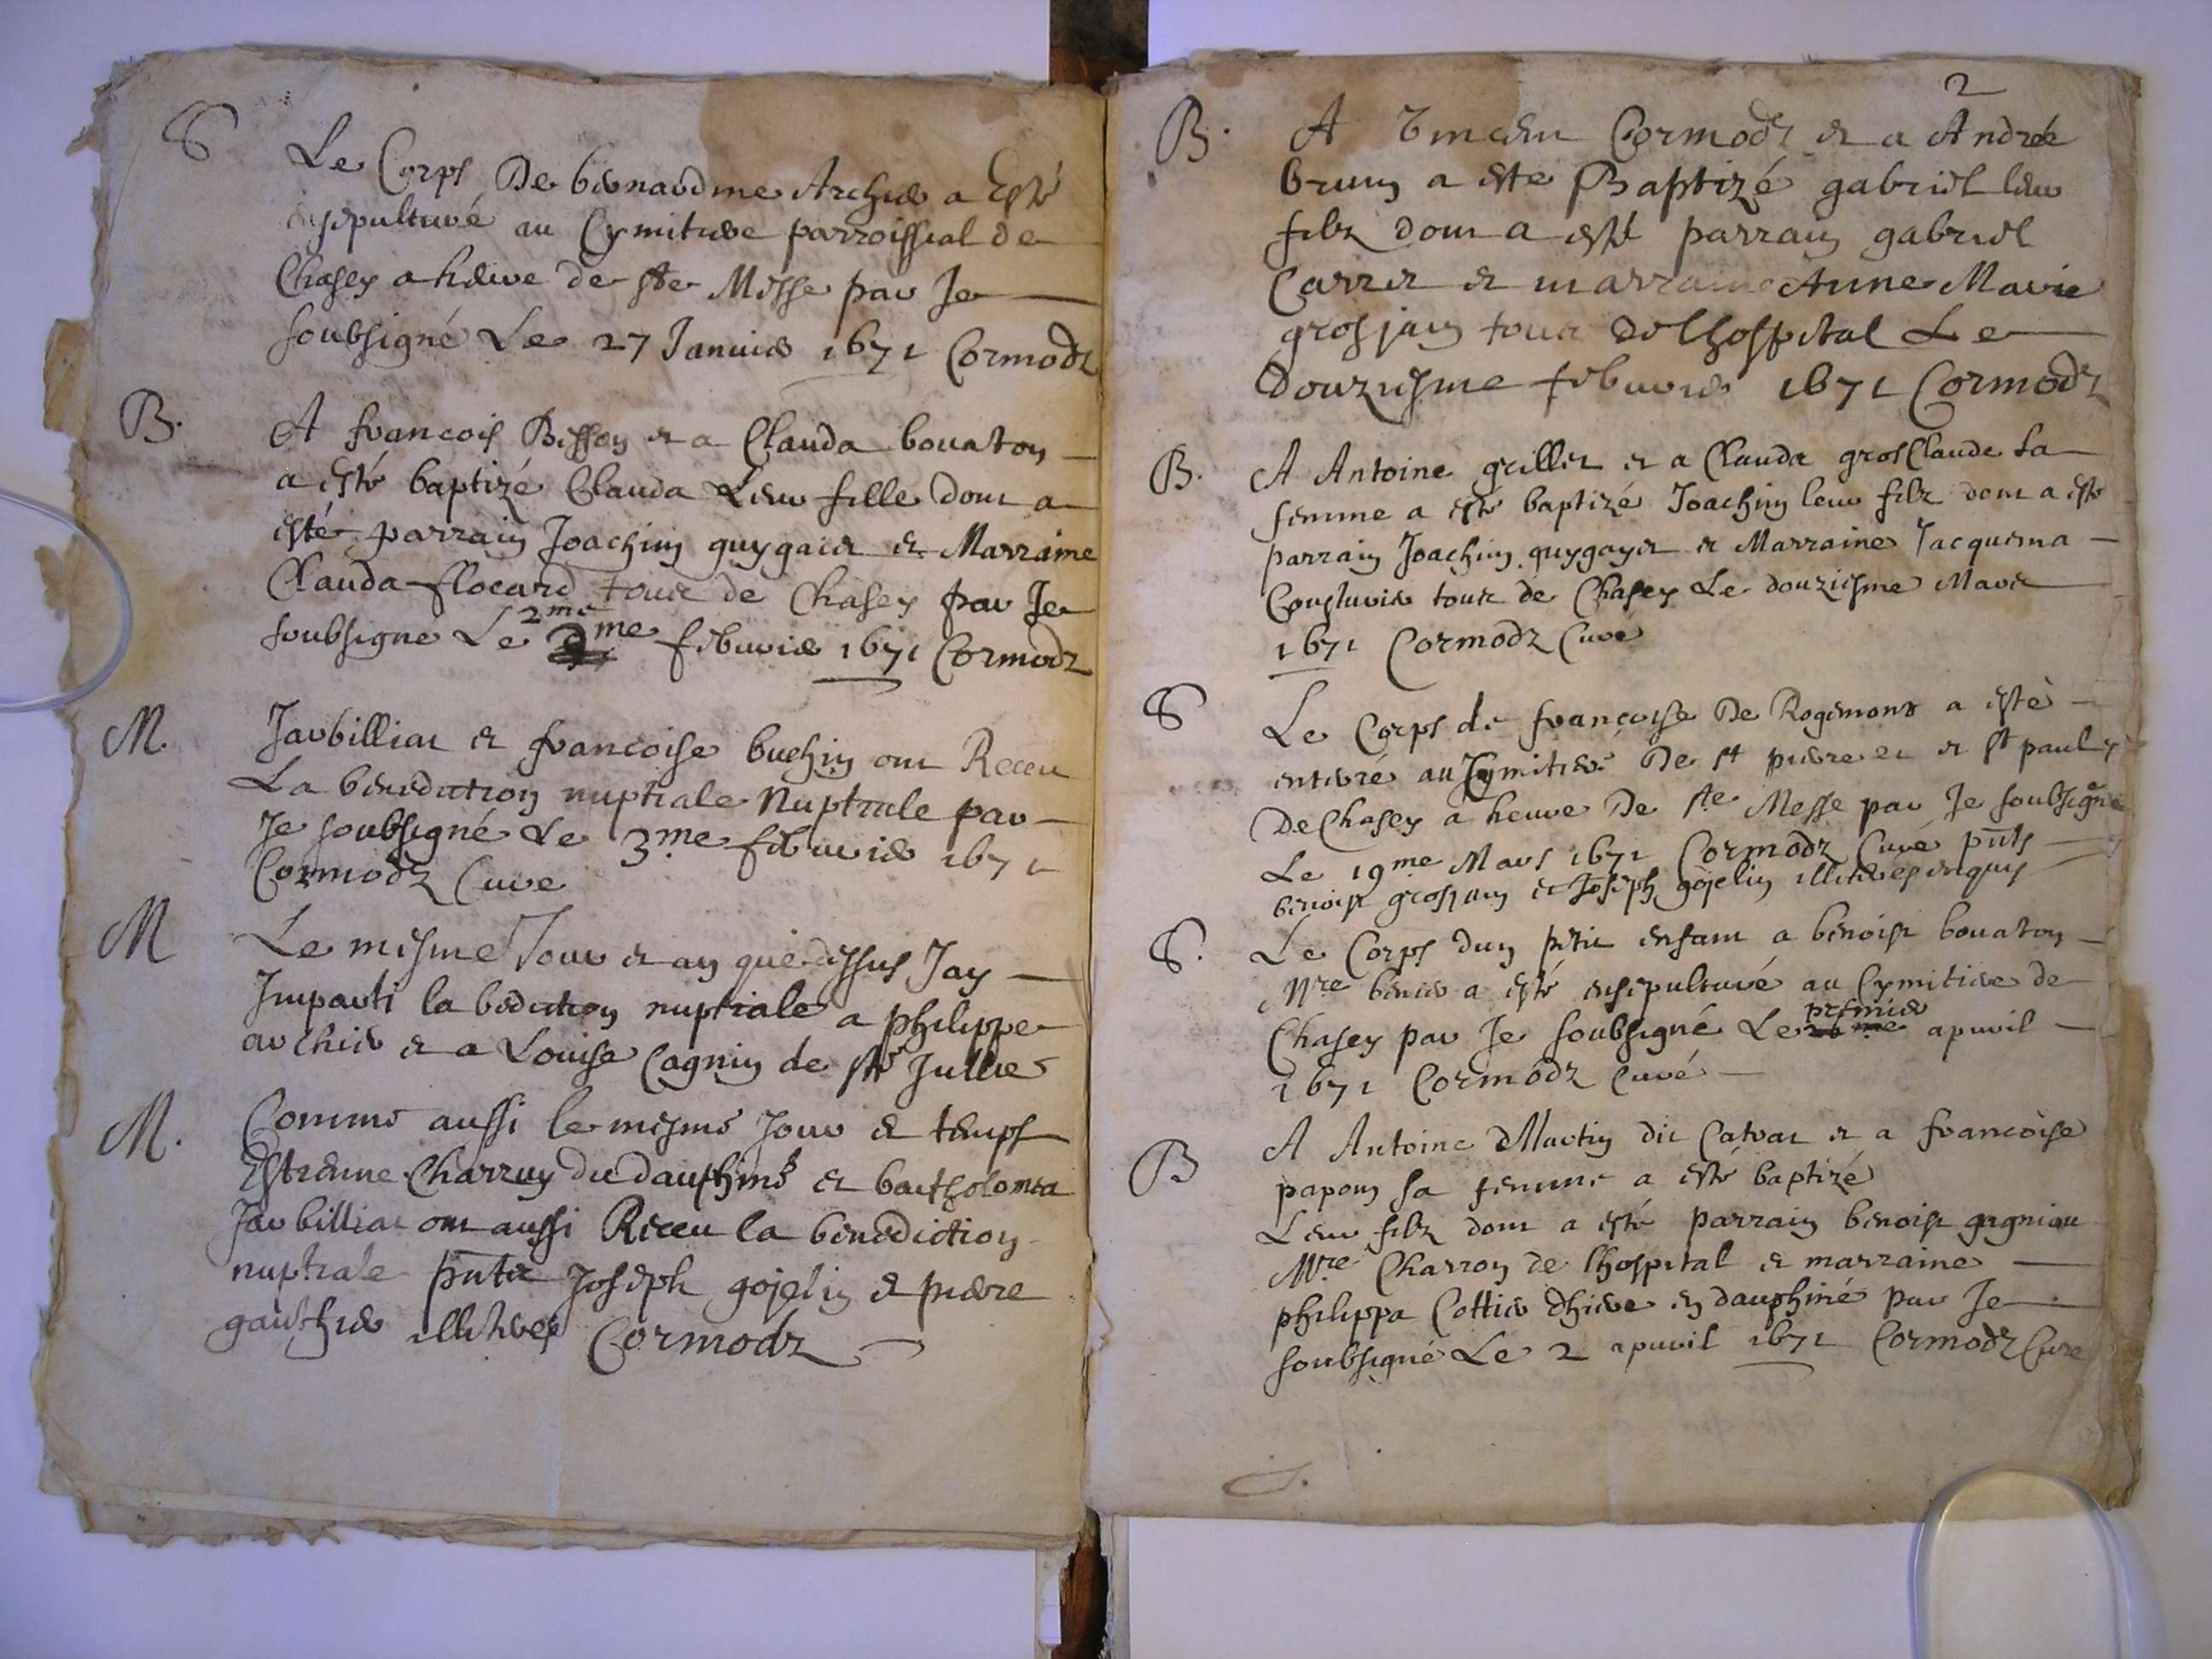 S Le Corps De bernardine Archer a Esté
ensepulturé au Cymitiere parroissial de
Chasey a heure de ste Messe par Je
soubsigné Le 27 Januier 1671 Cormodz
B. A francois Bisson et a Clauda bouaton
a esté baptizé Clauda Leur fille dont a
esté parrain Joachim guygaiet et Marraine
Clauda flocard tous de Chasey par Je
soubsigne Le 2me feburier 1671 Cormodz
M. Jarbilliat et francoise buchin ont Receu
La benediction nuptiale Nuptiale par
Je soubsigné Le 3me feburier 1671
Cormodz Curé
M Le mesme Jour et an que dessus Jay
Imparti la bediction nuptiale a philippe
archier et a Louise Cagnin de ste Jullie
M. Comme aussi le mesme Jour et temps
Estienne Charruy du dauphiné et bartholomea
Jarbilliat ont aussi Receu la benediction
nuptiale pnts Joseph gojelin et pierre
gauthier illiteres Cormodz
2
B. A Vincent Cormodz et a Andrée
brun a este Baptizé gabriel leur
filz dont a esté parrain gabriel
Carret et marraine Anne Marie
grosjain tous de lhospital Le
douziesme feburier 1671 Cormodz
B. A Antoine grillet et a Clauda grosClaude sa
femme a esté baptizé Joachim leur filz dont a esté
parrain Joachim guygayet et Marraine Jacquema
tous de Chasey Le douziesme Mars
1671 Cormodz Curé
S Le Corps de francoise De Rogemont a esté
enterré au Cymitiere De st pierre et st paul
De Chasey a heure De ste Messe par Je soubsigné
Le 19me Mars 1671 Cormodz Curé pnts
benoist grosjain et Joseph gojelin illiteres enquis
S. Le Corps dun petit enfant a benoist bouaton
Mre a esté ensepulturé au Cymitiere de
Chasey par Je soubsigné Le premier apuril
1671 Cormodz Curé
B A Antoine Martin dit Catrat et a francoise
papon sa femme a esté baptizé
Leur filz dont a esté parrain benoist gagniau
Mre Charron de lhospital et marraine
philippa Cottier dhiere en dauphiné par Je
soubsigné Le 2 apuril 1671 Cormodz Curé